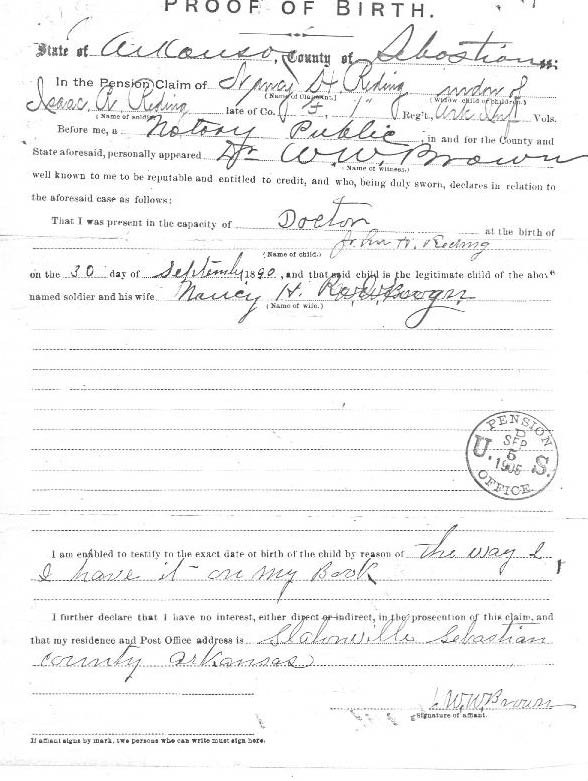 PROOF OF BIRTH.
State of Arkansas, County of Sebastian ss:
In the Pension Claim of Nancy H Reding widow of
(Name of Claimant.) (Widow, child or children.)
Isaac R. Reding late of Co. 1" Reg't, Ark Inf Vols.
(Name of soldier.)
Before me, a Notary Public, in and for the County and
State aforesaid, personally appeared Dr W.W. Brown
(Name of witness.)
well known to me to be reputable and entitled to credit, and who, being duly sworn, declares in relation to
the aforesaid case as follows:
That I was present in the capacity of Doctor at the birth of
John H. Reding
(Name of child.)
on the 30 day of September 1890, and that said child is the legitimate child of the above
named soldier and his wife Nancy H.
(Name of wife.)
PENSION OFFICE
U. S.
SEP
5
1905
I am enabled to testify to the exact date of birth of the child by reason of the way I
I have it on my Book
I further declare that I have no interest, either direct or indirect, in the prosecution of this claim, and
that my residence and Post Office address is Slatonville Sebastian
county Arkansas
W.W. Brown
Signature of affiant.
If affiant signs by mark, two persons who can write must sign here.